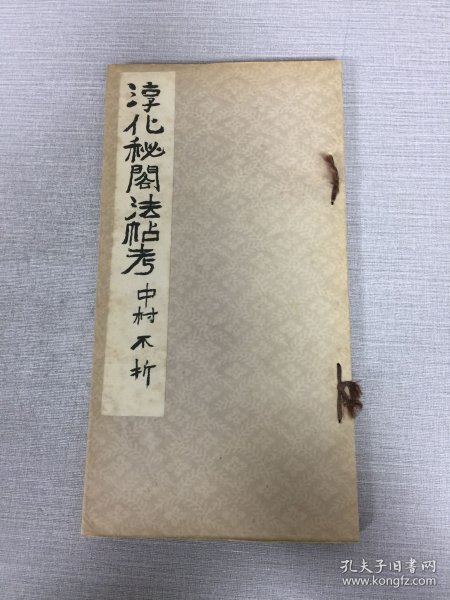 淳化秘閣法帖考
中村不折
孔夫子旧书网
www.kongfz.com